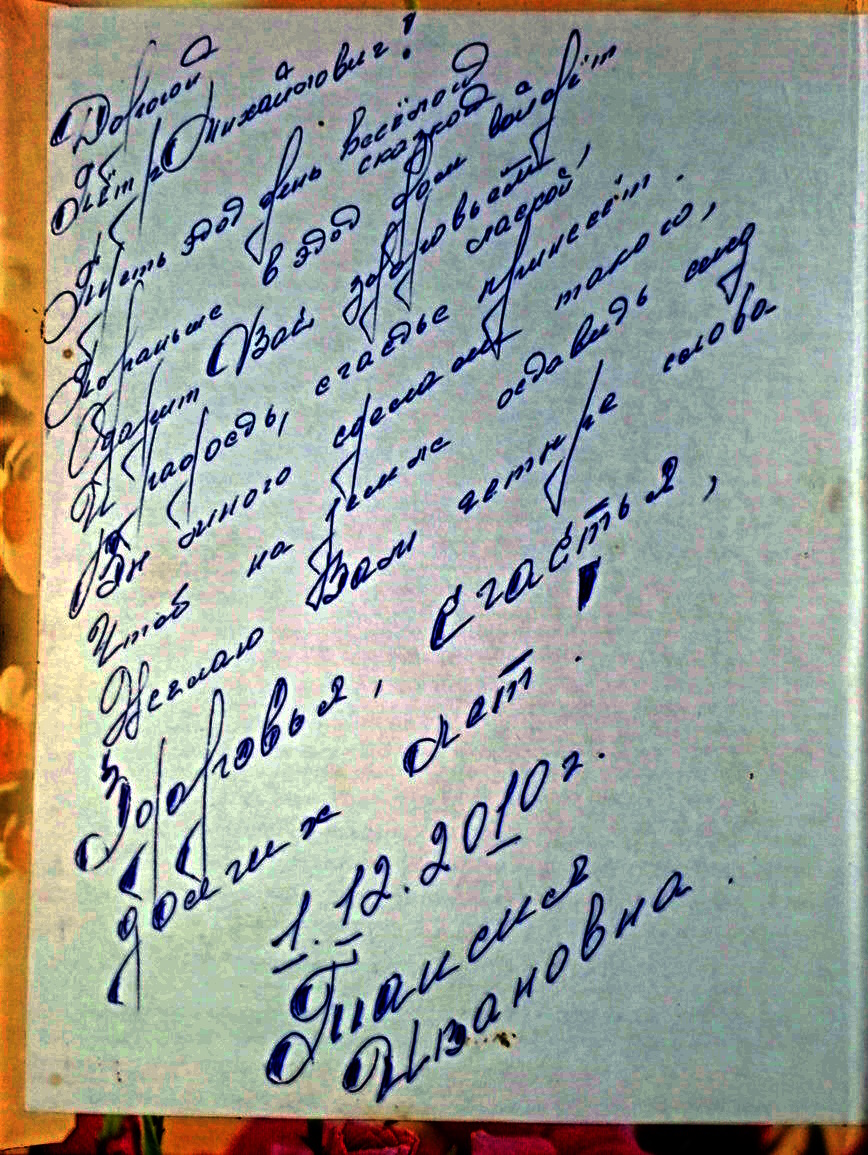 Дорогой
Пётр Михайлович!
Пусть этот день весёлой сказкой
Пораньше в этот дом войдёт
Одарит Вас здоровьем, лаской,
И радость, счастье принесёт.
Вы много сделали такого,
Чтоб на земле оставить след
Желаю Вам четыре слова
Здоровья, счастья,
долгих лет!
1.12.2010г.
Таисия
Ивановна.